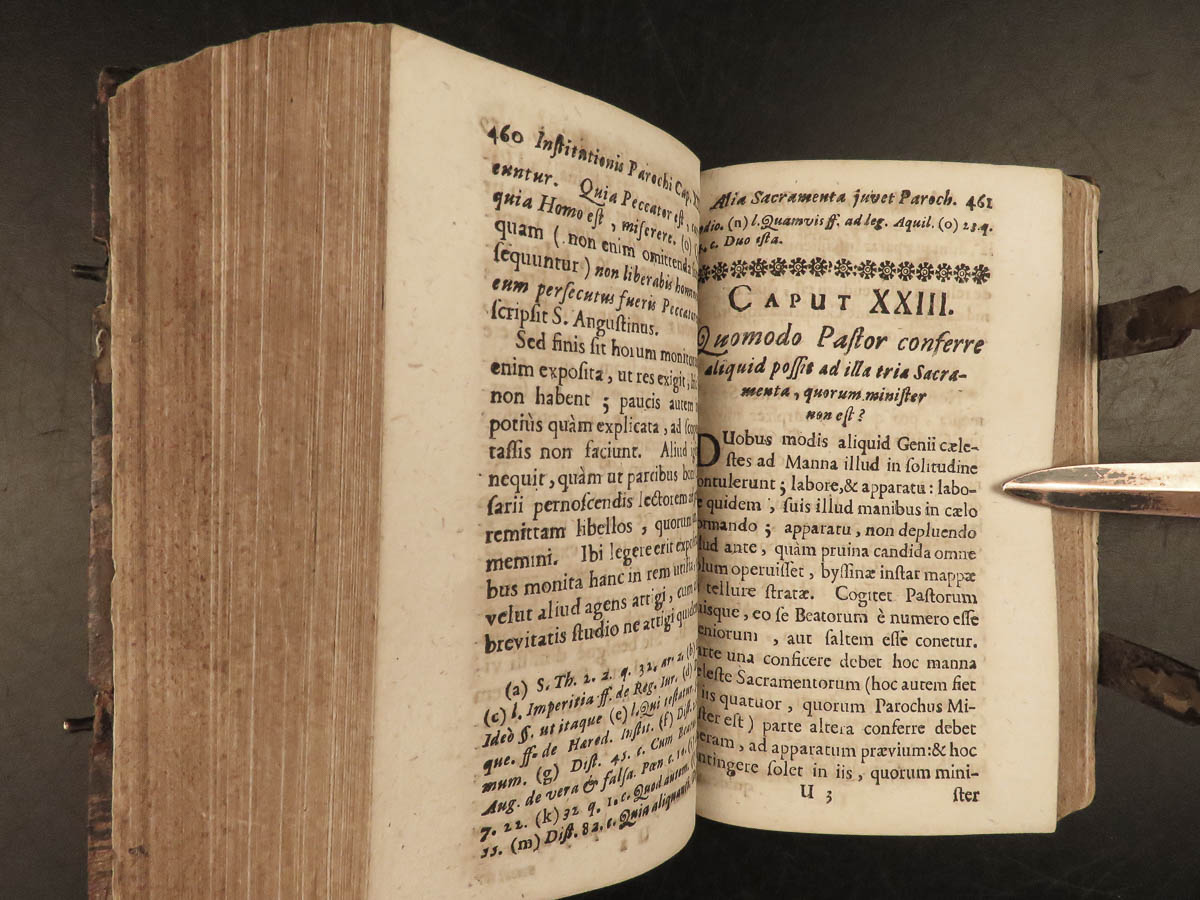 460 Inſtitutionis Parochi Cap.
euntur. Quia Peccator eſt,
quia Homo eſt, miſerere. (o)
quam (non enim omittenda
ſequuntur) non liberabis
eum perſecutus fueris Peccator
ſcripſit S. Auguſtinus.
Sed finis ſit horum
enim expoſita, ut res exigit,
non habent; paucis autem
potiùs quàm explicata, ad
taſſis non faciunt. Aliud
nequit, quàm ut parcibus
ſarii pernoſcendis lectorem
remittam libellos, quorum
memini. Ibi legere erit
bus monita hanc in rem
velut aliud agens attigi, cum
brevitatis ſtudio ne attigi quidem
(a) S. Th. 2. 2. q. 32. ar. 2. (b)
(c) l. Imperitia ff. de Reg. Iur. (d)
Ideò §. ut itaque (e) l. Qui teſtatur.
que. ff. de Hared. Inſtit. (f) Diſt.
mum. (g) Diſt. 45. c. Cum
Aug. de vera & falſa. Pœn c. 10.
7. 22. (k) 32 q. 1. c. Quod autem.
11. (m) Diſt. 82. c. Quia aliquanti.
Alia Sacramenta juvet Paroch. 461
dio. (n) l. Quamvis ff. ad leg. Aquil. (o) 23. q.
c. Duo iſta.
CAPUT XXIII.
Quomodo Paſtor conferre
aliquid poſſit ad illa tria Sacra-
menta, quorum miniſter
non eſt?
DUobus modis aliquid Genii cæle-
ſtes ad Manna illud in ſolitudine
ontulerunt; labore, & apparatu: labo-
e quidem, ſuis illud manibus in cælo
ormando; apparatu, non depluendo
lud ante, quàm pruina candida omne
olum operuiſſet, byſſinæ inſtar mappæ
tellure ſtratæ. Cogitet Paſtorum
uisque, eo ſe Beatorum è numero eſſe
eniorum, aut ſaltem eſſe conetur.
arte una conficere debet hoc manna
eleſte Sacramentorum (hoc autem fiet
iis quatuor, quorum Parochus Mi-
ſter eſt) parte altera conferre debet
eram, ad apparatum prævium: & hoc
ntingere ſolet in iis, quorum mini-
U 3 ſter